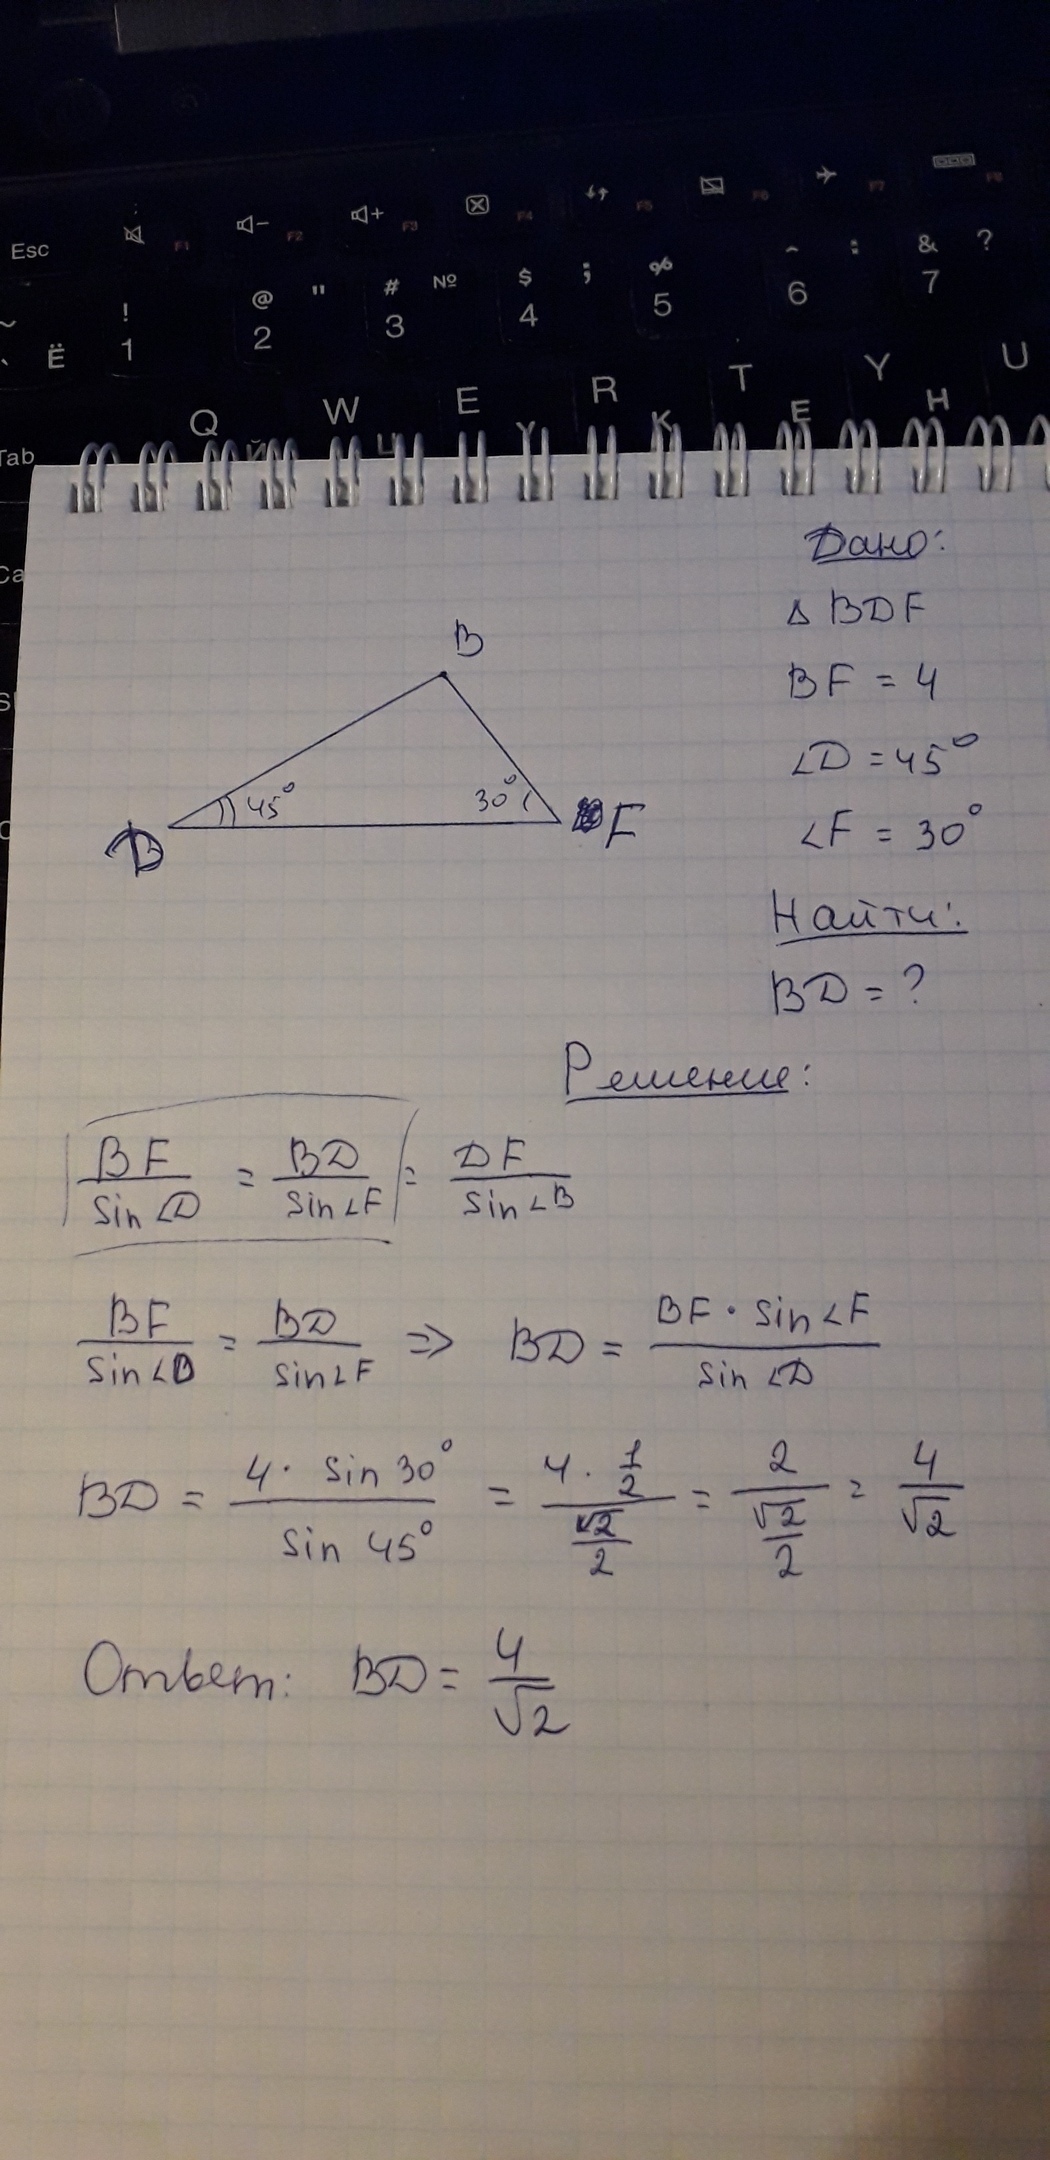 Esc F1 F2 F3 F4 F5 F6 F7 F8
~ Ё ! 1 @ " 2 # № 3 $ ; 4 % 5 ^ : 6 & ? 7
Tab Q Й W Ц E У R К T Е Y Н U
Дано:
Δ BDF
BF = 4
∠D = 45°
∠F = 30°
Найти:
BD = ?
B
45° 30°
D F
Решение:
BF / sin∠D = BD / sin∠F = DF / sin∠B
BF / sin∠D = BD / sin∠F ⇒ BD = BF · sin∠F / sin∠D
BD = 4 · sin 30° / sin 45° = (4 · 1/2) / (√2/2) = 2 / (√2/2) = 4/√2
Ответ: BD = 4/√2